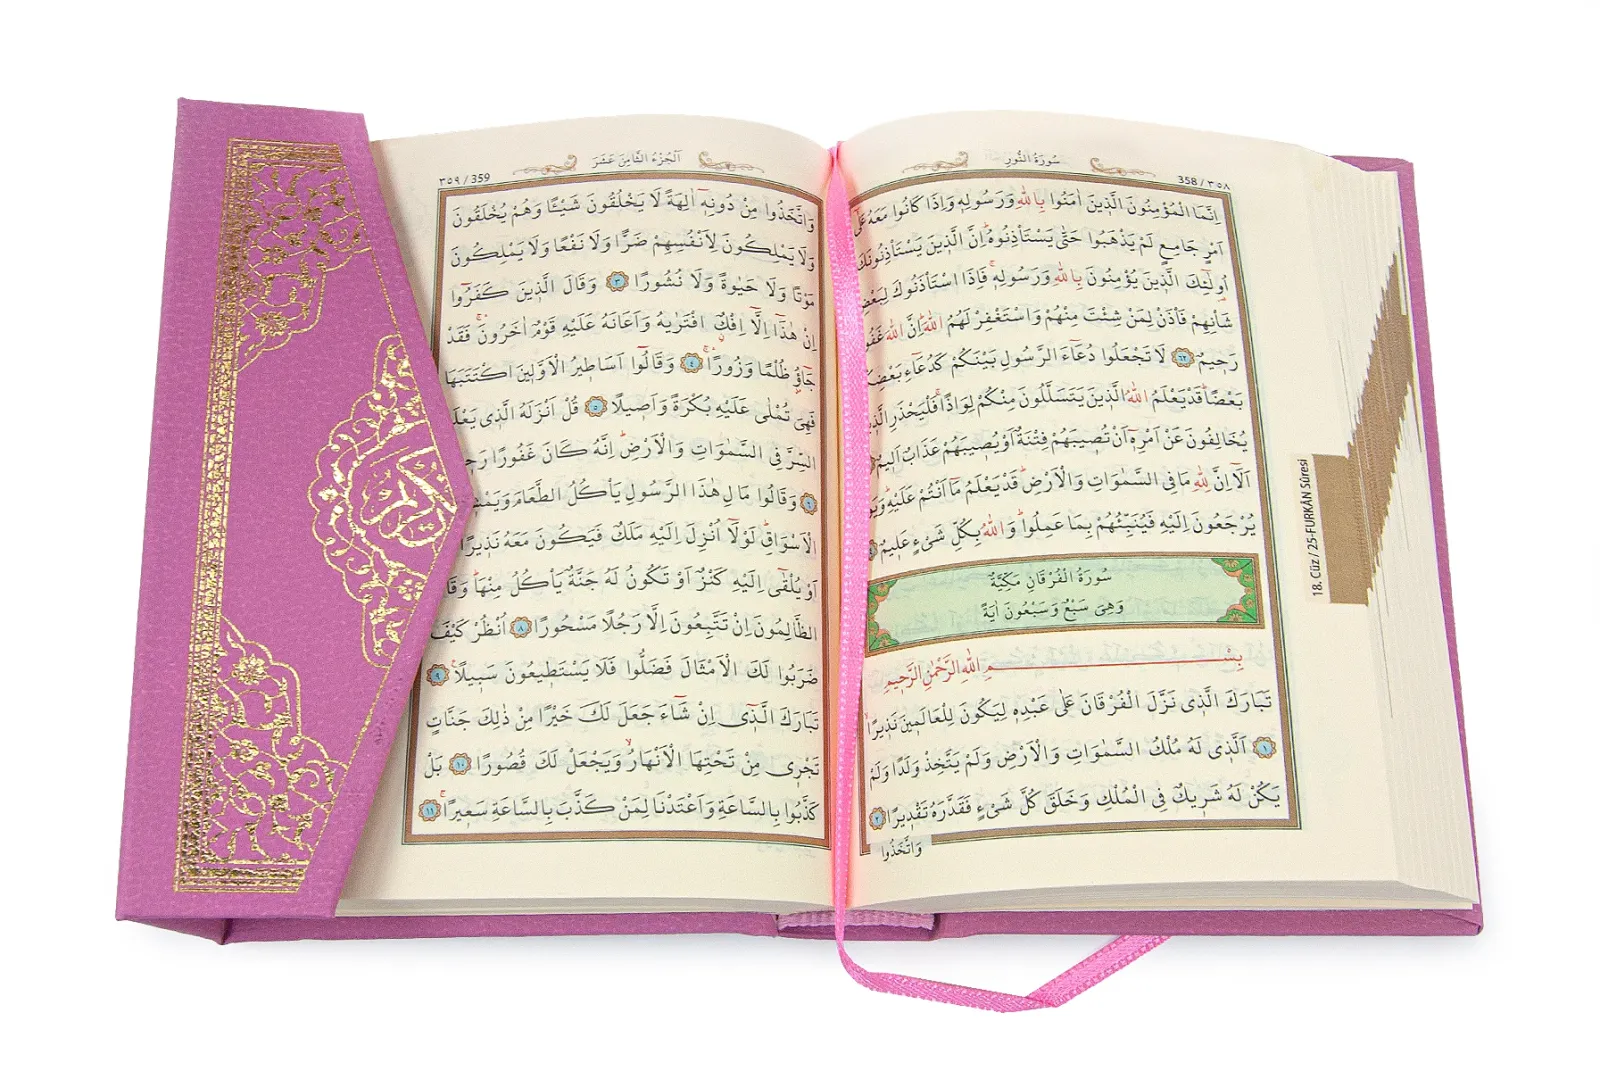 سُورَةُ النُّورِ
358 / ٣٥٨
اِنَّمَا الْمُؤْمِنُونَ الَّذٖينَ اٰمَنُوا بِاللّٰهِ وَرَسُولِهٖ وَاِذَا كَانُوا مَعَهُ عَلٰٓى
اَمْرٍ جَامِعٍ لَمْ يَذْهَبُوا حَتّٰى يَسْتَأْذِنُوهُۜ اِنَّ الَّذٖينَ يَسْتَأْذِنُونَكَ
اُو۬لٰٓئِكَ الَّذٖينَ يُؤْمِنُونَ بِاللّٰهِ وَرَسُولِهٖۚ فَاِذَا اسْتَأْذَنُوكَ لِبَعْضِ
شَأْنِهِمْ فَأْذَنْ لِمَنْ شِئْتَ مِنْهُمْ وَاسْتَغْفِرْ لَهُمُ اللّٰهَۜ اِنَّ اللّٰهَ غَفُو
رَحٖيمٌ ٦٢ لَا تَجْعَلُوا دُعَٓاءَ الرَّسُولِ بَيْنَكُمْ كَدُعَٓاءِ بَعْضِكُ
بَعْضًاۜ قَدْ يَعْلَمُ اللّٰهُ الَّذٖينَ يَتَسَلَّلُونَ مِنْكُمْ لِوَاذًاۚ فَلْيَحْذَرِ الَّذٖ
يُخَالِفُونَ عَنْ اَمْرِهٖٓ اَنْ تُصٖيبَهُمْ فِتْنَةٌ اَوْ يُصٖيبَهُمْ عَذَابٌ اَلٖيمٌ
اَلَٓا اِنَّ لِلّٰهِ مَا فِي السَّمٰوَاتِ وَالْاَرْضِۜ قَدْ يَعْلَمُ مَٓا اَنْتُمْ عَلَيْهِۜ وَيَوْ
يُرْجَعُونَ اِلَيْهِ فَيُنَبِّئُهُمْ بِمَا عَمِلُواۜ وَاللّٰهُ بِكُلِّ شَيْءٍ عَلٖيمٌ
سُورَةُ الْفُرْقَانِ مَكِّيَّةٌ
وَهِيَ سَبْعٌ وَسَبْعُونَ اٰيَةً
بِسْمِ اللّٰهِ الرَّحْمٰنِ الرَّحٖيمِ
تَبَارَكَ الَّذٖي نَزَّلَ الْفُرْقَانَ عَلٰى عَبْدِهٖ لِيَكُونَ لِلْعَالَمٖينَ نَذٖيرًاۙ
١ اَلَّذٖي لَهُ مُلْكُ السَّمٰوَاتِ وَالْاَرْضِ وَلَمْ يَتَّخِذْ وَلَدًا وَلَمْ
يَكُنْ لَهُ شَرٖيكٌ فِي الْمُلْكِ وَخَلَقَ كُلَّ شَيْءٍ فَقَدَّرَهُ تَقْدٖيرًا ٢
وَاتَّخَذُوا
18. Cüz / 25-FURKÂN Sûresi
اَلْجُزْءُ الثَّامِنَ عَشَرَ
٣٥٩ / 359
وَاتَّخَذُوا مِنْ دُونِهٖٓ اٰلِهَةً لَا يَخْلُقُونَ شَيْـًٔا وَهُمْ يُخْلَقُونَ
وَلَا يَمْلِكُونَ لِاَنْفُسِهِمْ ضَرًّا وَلَا نَفْعًا وَلَا يَمْلِكُونَ
مَوْتًا وَلَا حَيٰوةً وَلَا نُشُورًا ٣ وَقَالَ الَّذٖينَ كَفَرُٓوا
اِنْ هٰذَٓا اِلَّٓا اِفْكٌۨ افْتَرٰيهُ وَاَعَانَهُ عَلَيْهِ قَوْمٌ اٰخَرُونَۚ فَقَدْ
جَٓاؤُ۫ ظُلْمًا وَزُورًاۚ ٤ وَقَالُٓوا اَسَاطٖيرُ الْاَوَّلٖينَ اكْتَتَبَهَا
فَهِيَ تُمْلٰى عَلَيْهِ بُكْرَةً وَاَصٖيلًا ٥ قُلْ اَنْزَلَهُ الَّذٖي يَعْلَ
السِّرَّ فِي السَّمٰوَاتِ وَالْاَرْضِۜ اِنَّهُ كَانَ غَفُورًا رَحٖ
٦ وَقَالُوا مَالِ هٰذَا الرَّسُولِ يَأْكُلُ الطَّعَامَ وَيَمْ
الْاَسْوَاقِۜ لَوْلَٓا اُنْزِلَ اِلَيْهِ مَلَكٌ فَيَكُونَ مَعَهُ نَذٖيرًا
اَوْ يُلْقٰٓى اِلَيْهِ كَنْزٌ اَوْ تَكُونُ لَهُ جَنَّةٌ يَأْكُلُ مِنْهَاۜ وَقَا
الظَّالِمُونَ اِنْ تَتَّبِعُونَ اِلَّا رَجُلًا مَسْحُورًا ٨ اُنْظُرْ كَيْفَ
ضَرَبُوا لَكَ الْاَمْثَالَ فَضَلُّوا فَلَا يَسْتَطٖيعُونَ سَبٖيلًا۟ ٩
تَبَارَكَ الَّذٖٓي اِنْ شَٓاءَ جَعَلَ لَكَ خَيْرًا مِنْ ذٰلِكَ جَنَّاتٍ
تَجْرٖي مِنْ تَحْتِهَا الْاَنْهَارُۙ وَيَجْعَلْ لَكَ قُصُورًا ١٠ بَلْ
كَذَّبُوا بِالسَّاعَةِ وَاَعْتَدْنَا لِمَنْ كَذَّبَ بِالسَّاعَةِ سَعٖيرًاۚ ١١